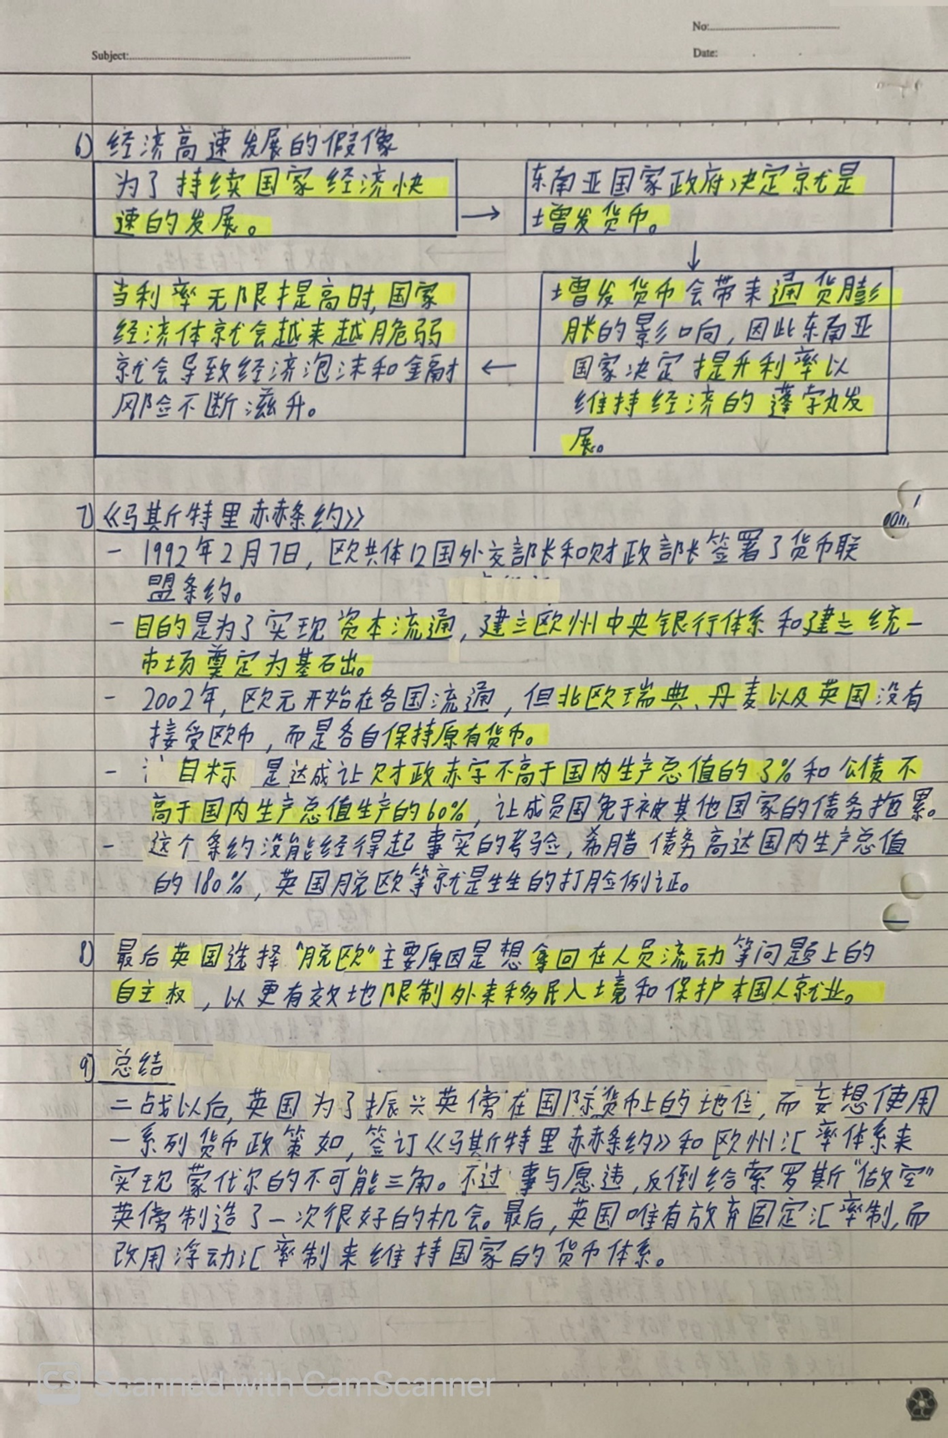 No:
Subject:
Date:
6) 经济高速发展的假像
为了持续国家经济快
速的发展。
东南亚国家政府决定就是
增发货币。
增发货币会带来通货膨
胀的影响，因此东南亚
国家决定提升利率以
维持经济的蓬字勃发
展。
当利率无限提高时,国家
经济体就会越来越脆弱
就会导致经济泡沫和金融
风险不断滋升。
7)《马其斤特里赫赫条约》
- 1992年2月7日，欧共体12国外交部长和财政部长签署了货币联
盟条约。
- 目的是为了实现资本流通，建立欧州中央银行体系和建立统一
市场奠定为基石出。
- 2002年，欧元开始在各国流通，但北欧瑞典、丹麦以及英国没有
接受欧币，而是各自保持原有货币。
- 目标 是达成让财政赤字不高于国内生产总值的3%和公债不
高于国内生产总值生产的60%，让成员国免于被其他国家的债务拖累。
- 这个条约没能经得起事实的考验,希腊债务高达国内生产总值
的180%，英国脱欧等就是生生的打脸例证。
8) 最后英国选择"脱欧"主要原因是想拿回在人员流动等问题上的
自主权，以更有效地限制外来移民入境和保护本国人就业。
9) 总结
二战以后,英国为了振兴英傍在国际货币上的地位,而妄想使用
一系列货币政策如，签订《马其斯特里赫赫条约》和欧州汇率体系来
实现蒙代尔的不可能三角。不过事与愿违,反倒给索罗斯"做空"
英傍制造了一次很好的机会。最后,英国唯有放弃固定汇率制,而
改用浮动汇率制来维持国家的货币体系。
CS Scanned with CamScanner